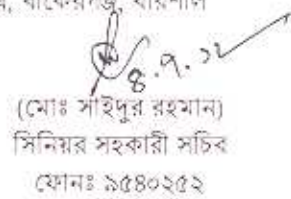 বাকেরগঞ্জ, বরিশাল
৪.৭.১২
(মোঃ সাইদুর রহমান)
সিনিয়র সহকারী সচিব
ফোনঃ ৯৫৪০২৫২